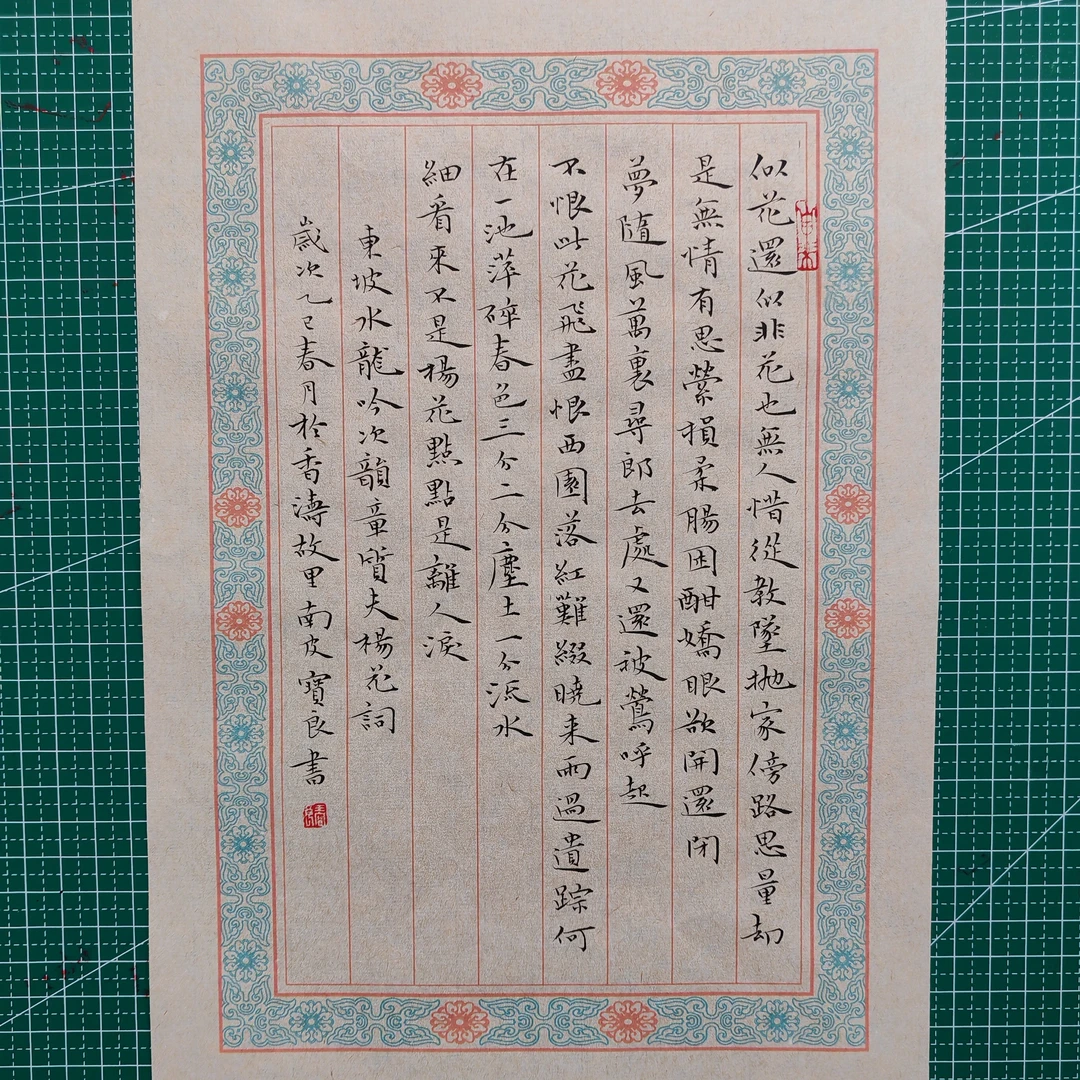 似花還似非花也無人惜從教墜抛家傍路思量却
是無情有思縈損柔腸困酣嬌眼欲開還閉
夢隨風萬裏尋郎去處又還被鶯呼起
不恨此花飛盡恨西園落紅難綴曉来雨過遺踪何
在一池萍碎春色三分二分塵土一分流水
細看來不是楊花點點是離人淚
東坡水龍吟次韻章質夫楊花詞
歲次乙巳春月於香濤故里南皮寶良書